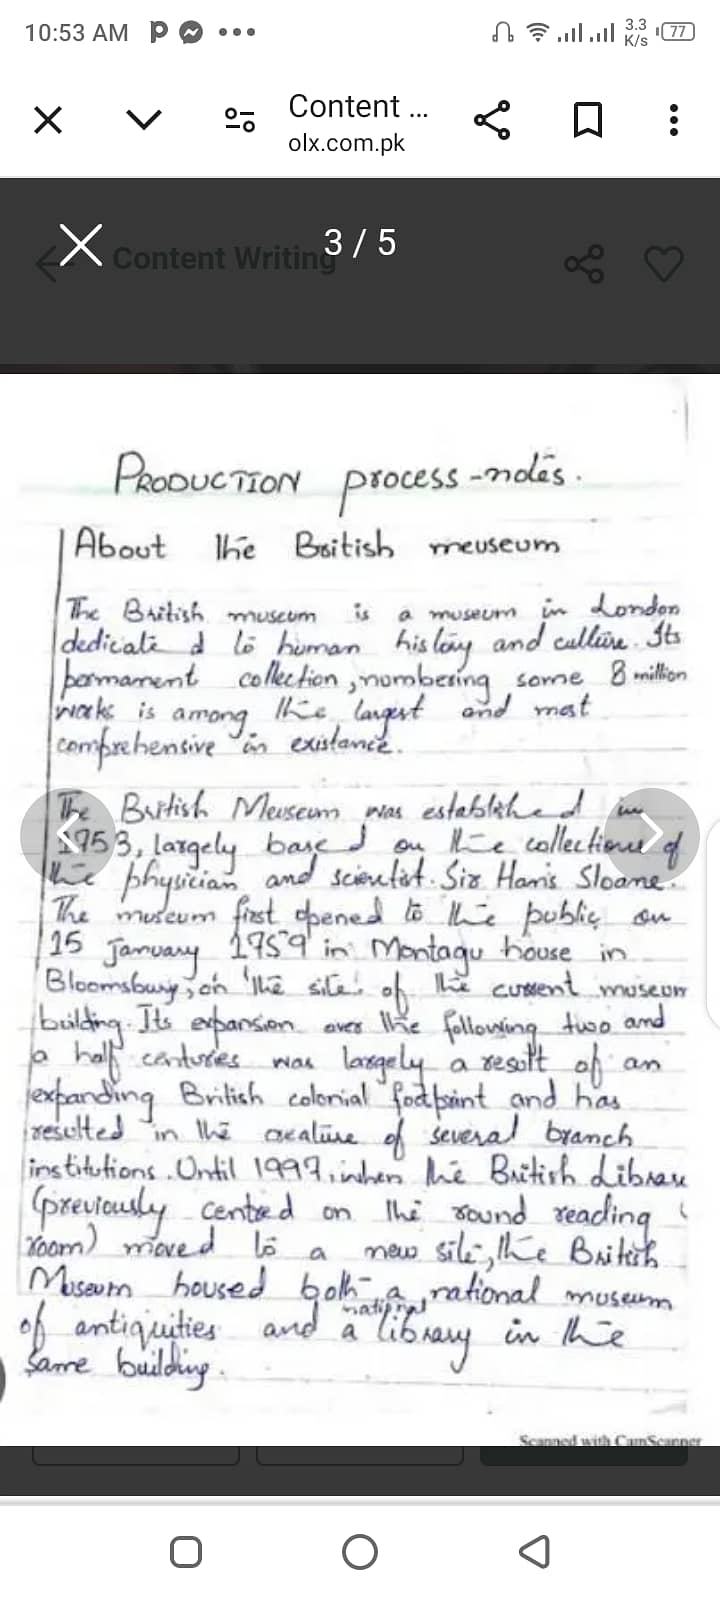 10:53 AM
3.3 K/s
77
Content ...
olx.com.pk
Content Writing
3 / 5
PRODUCTION process-notes.
About the British meuseum
The British museum is a museum in London
dedicate d to human history and culture. Its
permanent collection, numbering some 8 million
works is among the largest and most
comprehensive in existance.
The British Meuseum was established in
1953, largely based on the collections of
the physician and scientist. Sir Hans Sloane.
The museum first opened to the public on
15 January 1759 in Montagu house in
Bloomsbury, on the site of the current museum
building. Its expansion over the following two and
a half centuries was largely a result of an
expanding British colonial footprint and has
resulted in the creature of several branch
institutions. Until 1997, when the British Library
(previously centred on the round reading
room) moved to a new site, the British
Museum housed both a national museum
of antiquities and a national library in the
same building.
Scanned with CamScanner